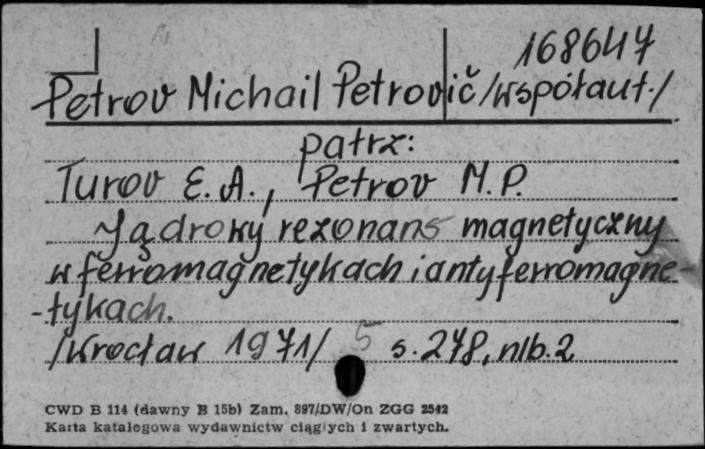 168647
Petrov Michail Petrovič /współaut./
patrz:
Turov E. A., Petrov M. P.
Jądrowy rezonans magnetyczny
w ferromagnetykach i antyferromagne-
-tykach.
/Wrocław 1971/ 5 s. 278, nlb. 2
CWD B 114 (dawny B 15b) Zam. 897/DW/On ZGG 2542
Karta katalogowa wydawnictw ciągłych i zwartych.